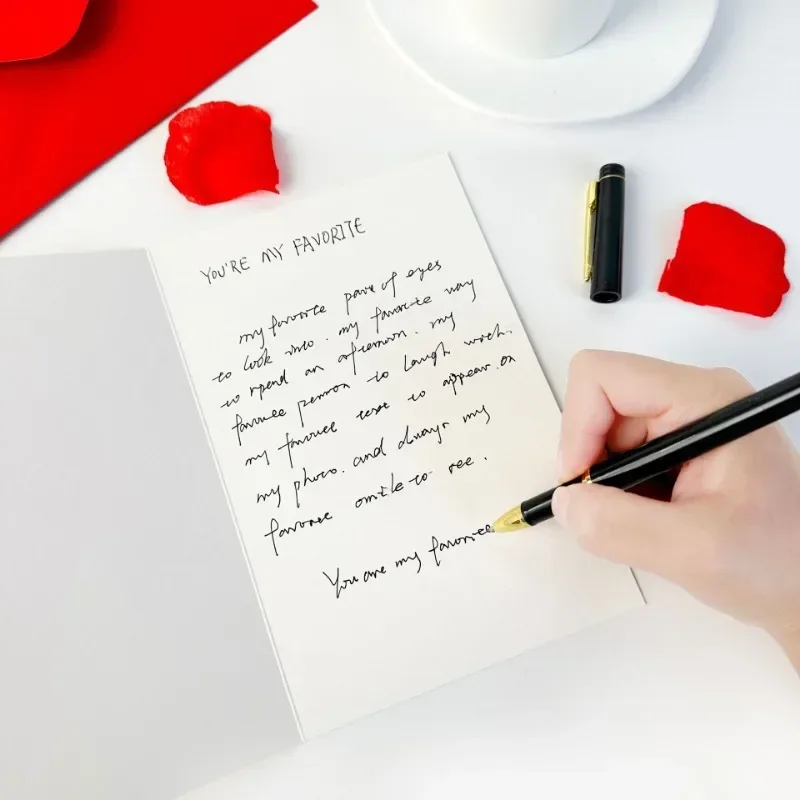 YOU'RE MY FAVORITE
my favorite pair of eyes
to look into. my favorite way
to spend an afternoon. my
favorite person to laugh with.
my favorite text to appear on
my phone. and always my
favorite smile to see.
You are my favorite